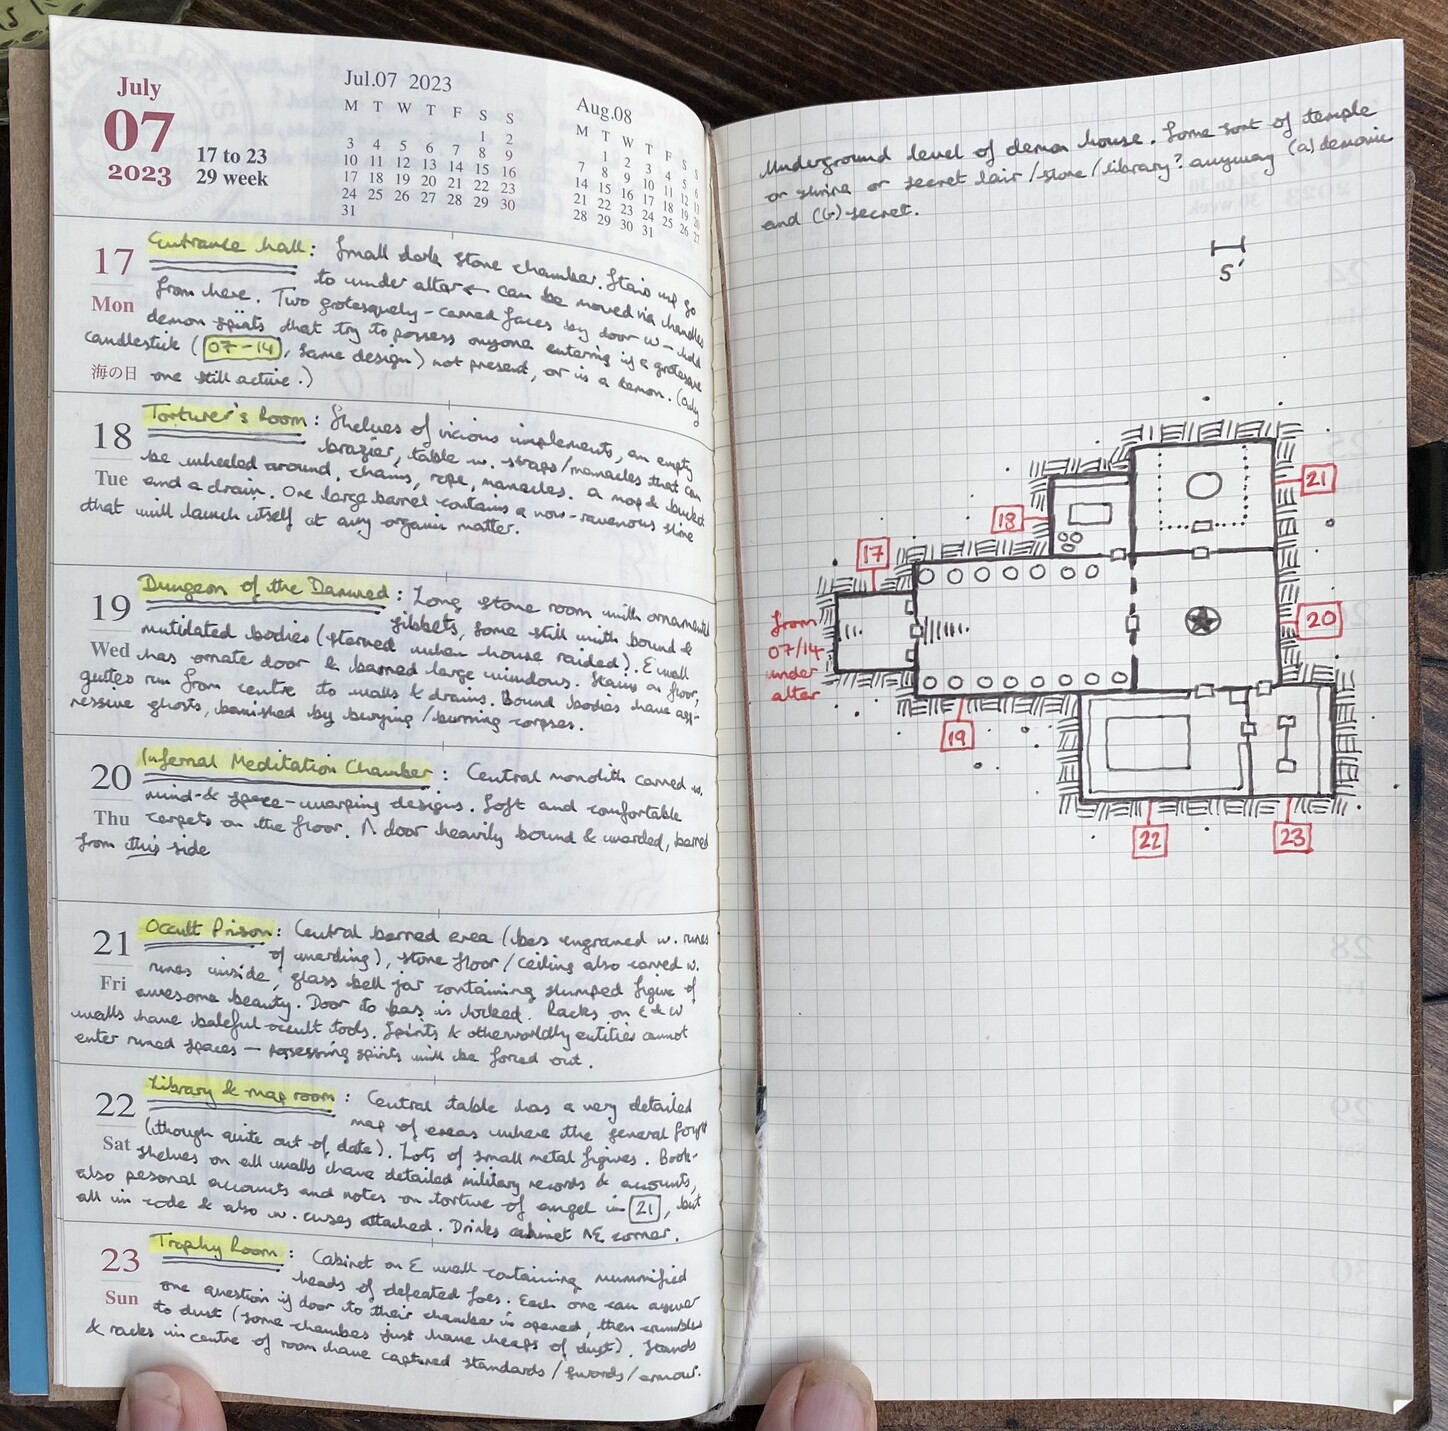 July
07
2023
17 to 23
29 week
Jul.07 2023
M T W T F S S
1 2
3 4 5 6 7 8 9
10 11 12 13 14 15 16
17 18 19 20 21 22 23
24 25 26 27 28 29 30
31
Aug.08
M T W T F S
1 2 3 4 5 6
7 8 9 10 11 12 13
14 15 16 17 18 19 20
21 22 23 24 25 26 27
28 29 30 31
17
Mon
海の日
Entrance hall: Small dark stone chamber. Stairs up go
to under altar ← can be moved via handles
from here. Two grotesquely-carved faces by door W - hold
demon spirits that try to possess anyone entering if a grotesque
candlestick (07-14, same design) not present, or is a demon. (Only
one still active.)
18
Tue
Torturer's Room: Shelves of vicious implements, an empty
brazier, table w. straps/manacles that can
be wheeled around, chains, rope, manacles. A mop & bucket
and a drain. One large barrel contains a now-ravenous slime
that will launch itself at any organic matter.
19
Wed
Dungeon of the Damned: Long stone room with ornamental
gibbets, some still with bound &
mutilated bodies (starved when house raided). E wall
has ornate door & barred large windows. Stains on floor,
gutters run from centre to walls & drains. Bound bodies have agg-
ressive ghosts, banished by burying/burning corpses.
20
Thu
Infernal Meditation Chamber: Central monolith carved w.
mind-& space-warping designs. Soft and comfortable
carpets on the floor. N door heavily bound & warded, barred
from this side
21
Fri
Occult Prison: Central barred area (bars engraved w. runes
of warding), stone floor/ceiling also carved w.
runes inside, glass bell jar containing slumped figure of
awesome beauty. Door to bars is locked. Racks on E & W
walls have baleful occult tools. Spirits & otherworldly entities cannot
enter runed spaces - possessing spirits will be forced out.
22
Sat
Library & map room: Central table has a very detailed
map of areas where the general fought
(though quite out of date). Lots of small metal figures. Book-
shelves on all walls have detailed military records & accounts,
also pesonal accounts and notes on torture of angel in 21, but
all in code & also w. curses attached. Drinks cabinet NE corner.
23
Sun
Trophy Room: Cabinet on E wall containing mummified
heads of defeated foes. Each one can answer
one question if door to their chamber is opened, then crumbles
to dust (some chambers just have heaps of dust). Stands
& racks in centre of room have captured standards/swords/armour.
Underground level of demon house. Some sort of temple
or shrine or secret lair/store/library? anyway (a) demonic
and (b) secret.
5'
21
18
17
from
07/14
under
altar
20
19
22
23